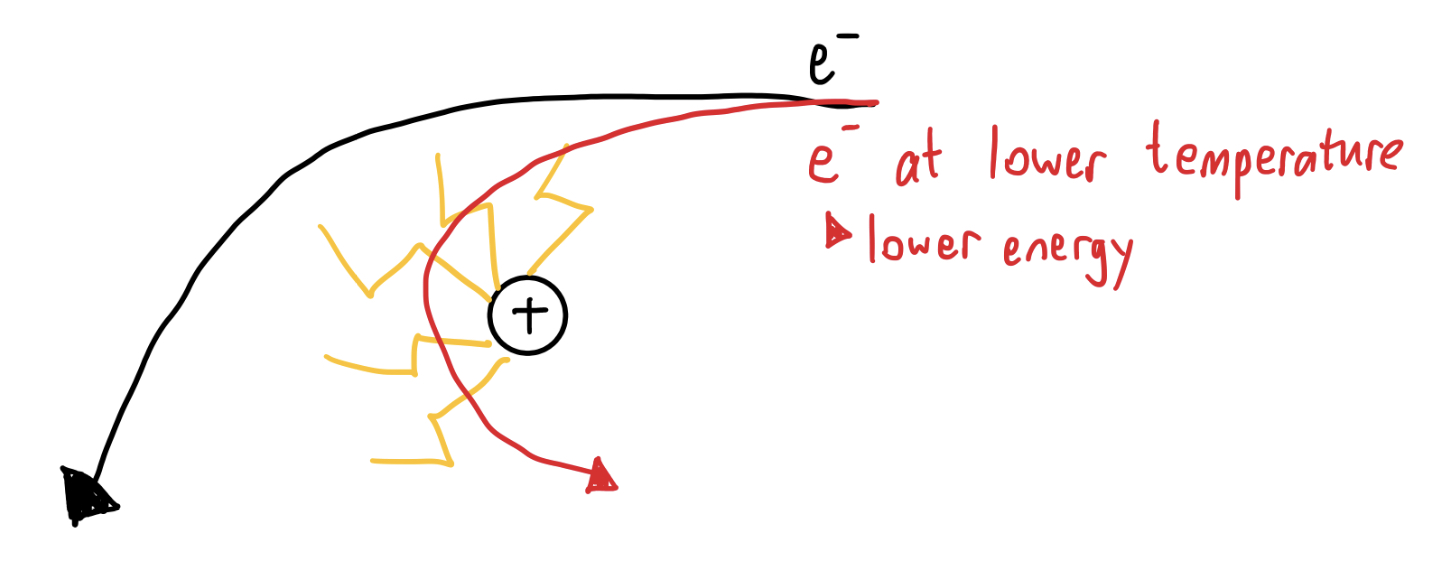 e⁻
e⁻ at lower temperature
lower energy
+